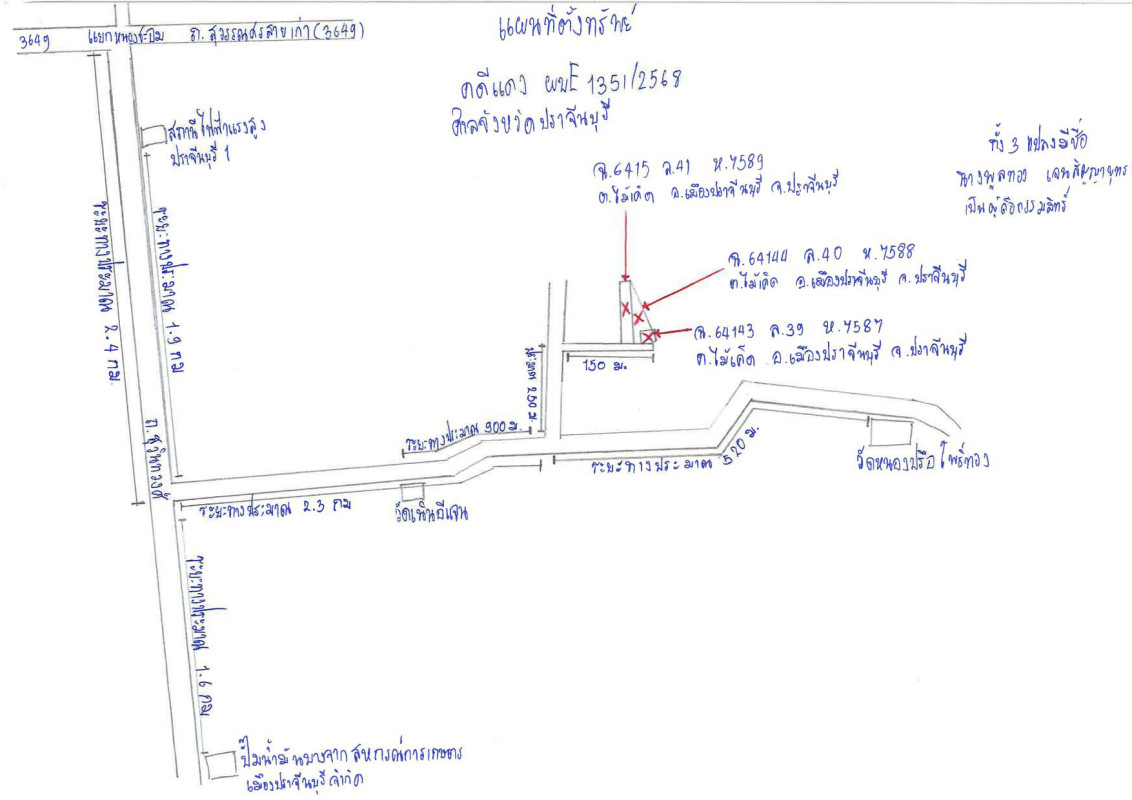 แผนที่ตั้งทรัพย์
3649 แยกหนองชะอม ถ. สุวรรณศรสายเก่า (3649)
คดีแดง ผบE 1351/2568
ศาลจังหวัดปราจีนบุรี
สถานีไฟฟ้าแรงสูง
ปราจีนบุรี 1
ทั้ง 3 แปลงมีชื่อ
นางพูลทอง
เป็นผู้ถือกรรมสิทธิ์
ฉ.6415 ล.41 ห.7589
ต.ไม้เค็ด อ.เมืองปราจีนบุรี จ.ปราจีนบุรี
ฉ.64144 ล.40 ห.7588
ต.ไม้เค็ด อ.เมืองปราจีนบุรี จ.ปราจีนบุรี
ฉ.64143 ล.39 ห.7587
ต.ไม้เค็ด อ.เมืองปราจีนบุรี จ.ปราจีนบุรี
ระยะทางประมาณ 2.4 กม.
ระยะทางประมาณ 1.9 กม
150 ม.
ประมาณ 250 ม.
ถ.สุวินทวงศ์
ระยะทางประมาณ 900 ม.
ระยะทางประมาณ 520 ม.
วัดหนองปรือโพธิ์ทอง
ระยะทางประมาณ 2.3 กม
วัดเนินอีแจน
ระยะทางประมาณ 1.6 กม
ปั๊มน้ำมันบางจาก สหกรณ์การเกษตร
เมืองปราจีนบุรี จำกัด